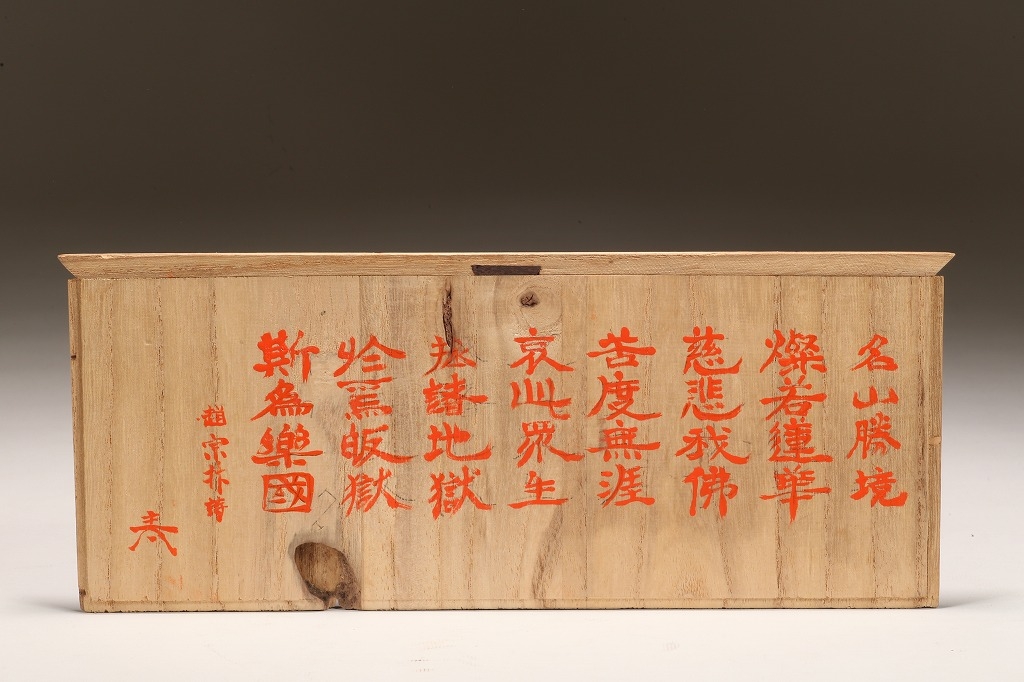 名山勝境
燦若蓮華
慈悲我佛
苦度無涯
哀此眾生
拯諸地獄
於焉皈獄
斯為樂國
趙宗